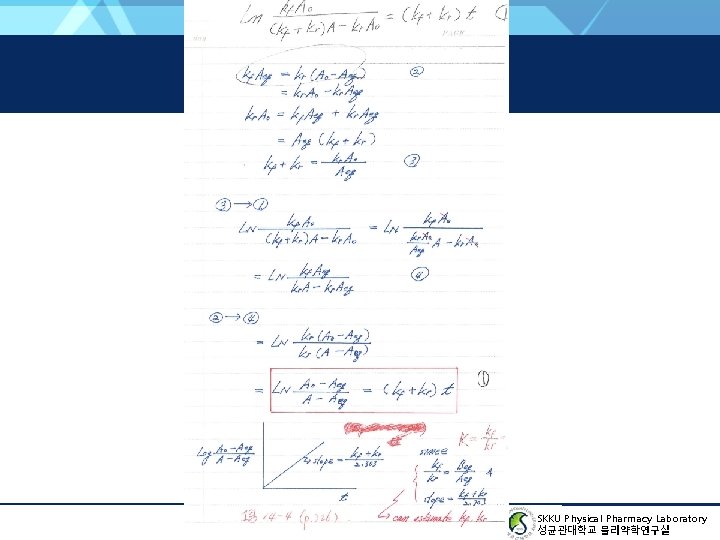 ln kfA₀ / (kf + kr)A − krA₀ = (kf + kr) t (1
kfAeq = kr (A₀ − Aeq) ②
= krA₀ − krAeq
krA₀ = kfAeq + krAeq
= Aeq (kf + kr)
kf + kr = krA₀ / Aeq ③
③ → ①
LN kfA₀ / (kf+kr)A − krA₀ = LN kfA₀ / krA₀/Aeq A − krA₀
= LN kfAeq / krA − krAeq ④
② → ④
= LN kr (A₀ − Aeq) / kr (A − Aeq)
= LN A₀ − Aeq / A − Aeq = (kf + kr) t ①
K = kf / kr
Log A₀ − Aeq / A − Aeq
slope = kf + kr / 2.303
t
since
kf / kr = Beq / Aeq
slope = kf + kr / 2.303
4-4 (p.326)
can estimate kf, kr
SKKU Physical Pharmacy Laboratory
성균관대학교 물리약학연구실